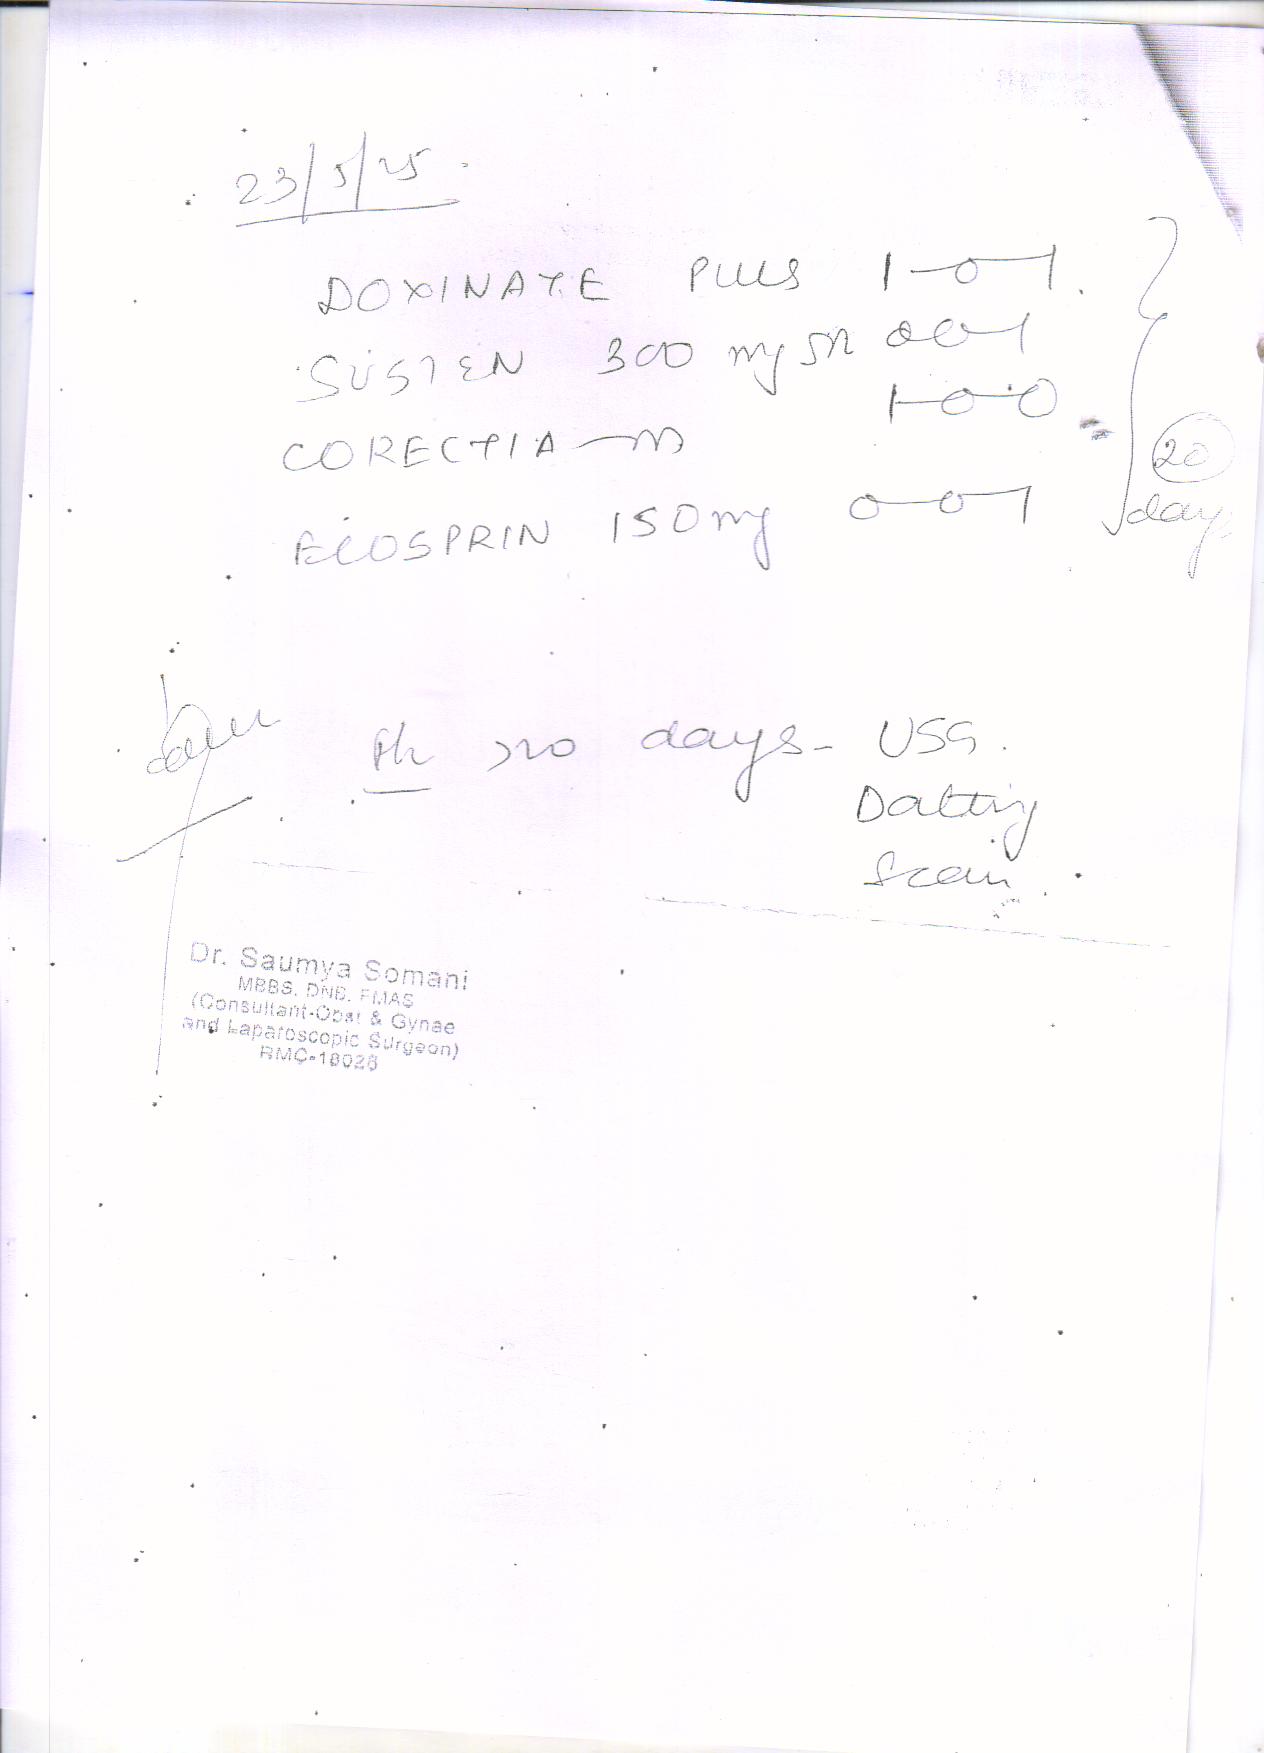 23/5/25.
DOXINATE PLUS 1-0-1.
SUSTEN 300 mg SR 0-0-1
1-0-0
CORECTIA-M
ECOSPRIN 150mg 0-0-1
20
days
20 days- USG.
Dating
Scan.
Dr. Saumya Somani
MBBS, DNB, FMAS
(Consultant-Obst & Gynae
and Laparoscopic Surgeon)
RMC-18026